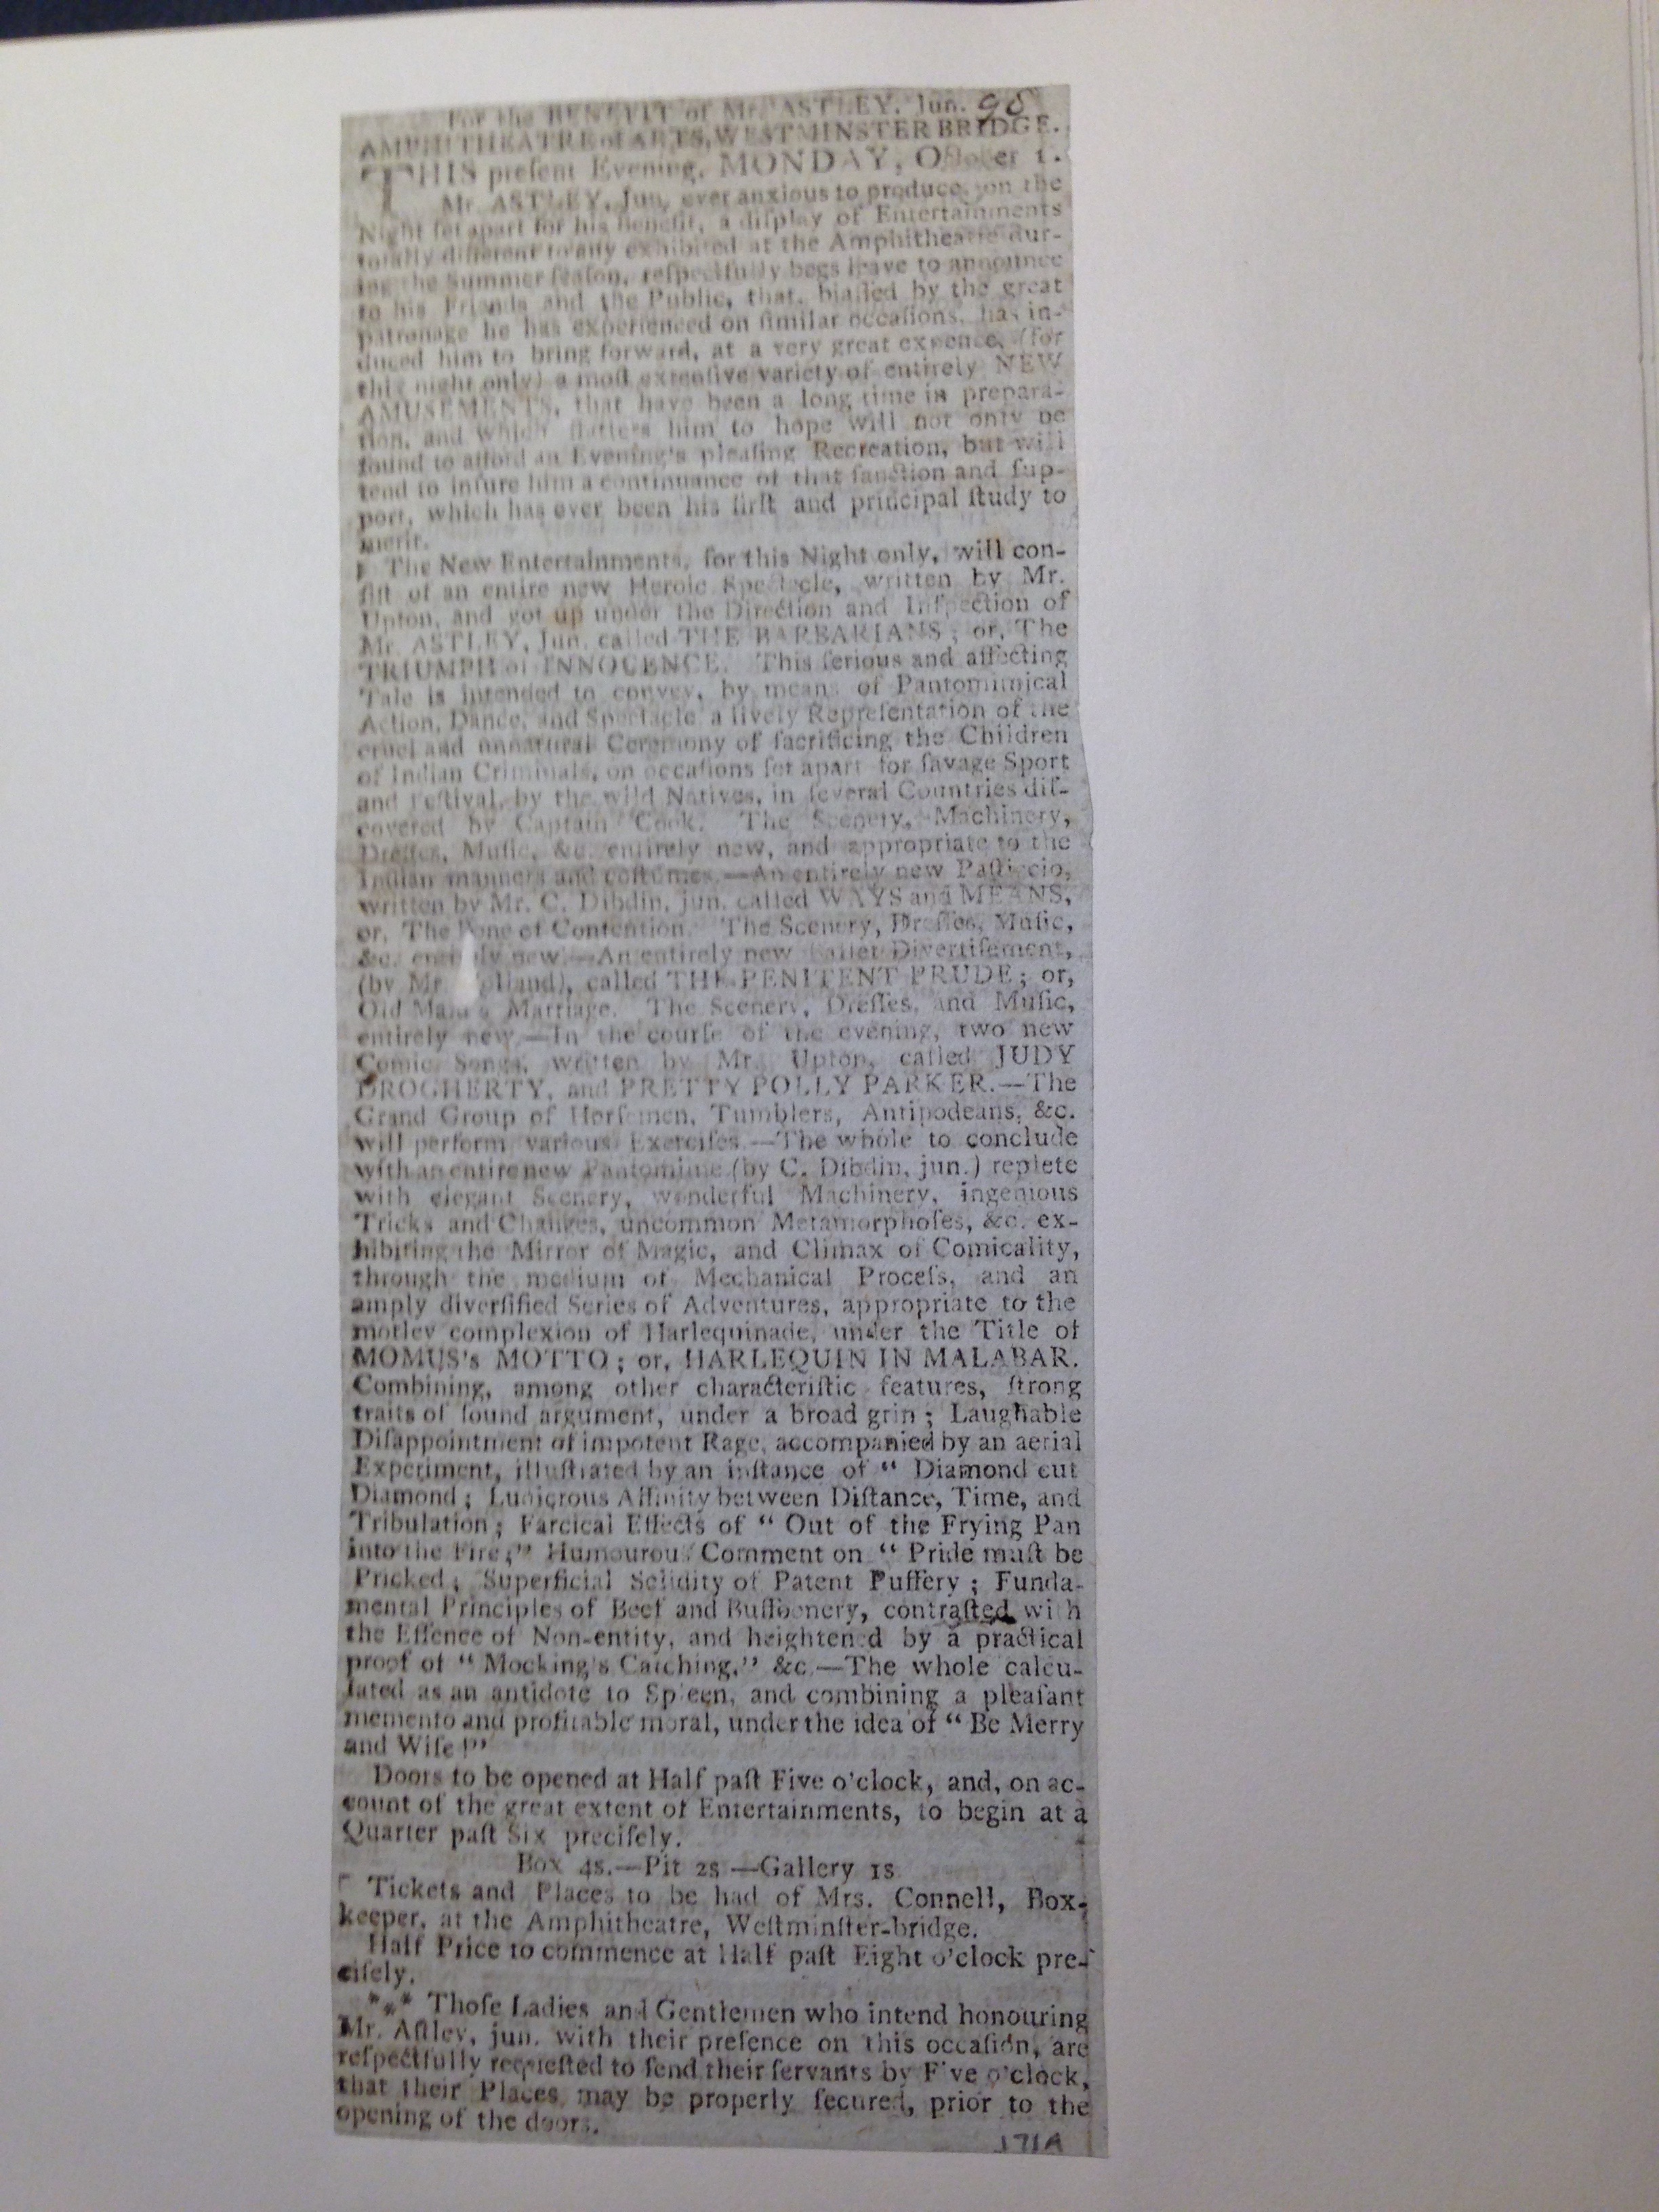 For the BENEFIT of Mr. ASTLEY, Jun. 98
AMPHITHEATRE of ARTS, WESTMINSTER BRIDGE.
THIS preſent Evening, MONDAY, October 1.
Mr. ASTLEY, Jun. ever anxious to produce, on the
Night ſet apart for his Benefit, a diſplay of Entertainments
totally different to any exhibited at the Amphitheatre dur-
ing the Summer ſeaſon, reſpectfully begs leave to announce
to his Friends and the Public, that, biaſſed by the great
patronage he has experienced on ſimilar occaſions, has in-
duced him to bring forward, at a very great expence, (for
this night only) a moſt extenſive variety of entirely NEW
AMUSEMENTS, that have been a long time in prepara-
tion, and which flatters him to hope will not only be
found to afford an Evening's pleaſing Recreation, but will
tend to inſure him a continuance of that ſanction and ſup-
port, which has ever been his firſt and principal ſtudy to
merit.
The New Entertainments, for this Night only, will con-
ſiſt of an entire new Heroic Spectacle, written by Mr.
Upton, and got up under the Direction and Inſpection of
Mr. ASTLEY, Jun. called THE BARBARIANS; or, The
TRIUMPH of INNOCENCE. This ſerious and affecting
Tale is intended to convey, by means of Pantomimical
Action, Dance, and Spectacle, a lively Repreſentation of the
cruel and unnatural Ceremony of ſacrificing the Children
of Indian Criminals, on occaſions ſet apart for ſavage Sport
and Feſtival, by the wild Natives, in ſeveral Countries diſ-
covered by Captain Cook. The Scenery, Machinery,
Dreſſes, Muſic, &c. entirely new, and appropriate to the
Indian manners and coſtumes.—An entirely new Paſticcio,
written by Mr. C. Dibdin, jun. called WAYS and MEANS,
or, The Bone of Contention. The Scenery, Dreſſes, Muſic,
&c. entirely new.—An entirely new Ballet Divertiſement,
(by Mr. olland), called THE PENITENT PRUDE; or,
Old Maid's Marriage. The Scenery, Dreſſes, and Muſic,
entirely new.—In the courſe of the evening, two new
Comic Songs, written by Mr. Upton, called JUDY
DROGHERTY, and PRETTY POLLY PARKER.—The
Grand Group of Horſemen, Tumblers, Antipodeans, &c.
will perform various Exerciſes.—The whole to conclude
with an entire new Pantomime (by C. Dibdin, jun.) replete
with elegant Scenery, wonderful Machinery, ingenious
Tricks and Changes, uncommon Metamorphoſes, &c. ex-
hibiting the Mirror of Magic, and Climax of Comicality,
through the medium of Mechanical Proceſs, and an
amply diverſified Series of Adventures, appropriate to the
motley complexion of Harlequinade, under the Title of
MOMUS's MOTTO; or, HARLEQUIN IN MALABAR.
Combining, among other characteriſtic features, ſtrong
traits of ſound argument, under a broad grin; Laughable
Diſappointment of impotent Rage, accompanied by an aerial
Experiment, illuſtrated by an inſtance of " Diamond cut
Diamond; Ludicrous Affinity between Diſtance, Time, and
Tribulation; Farcical Effects of " Out of the Frying Pan
into the Fire;" Humourous Comment on " Pride muſt be
Pricked; Superficial Solidity of Patent Puffery; Funda-
mental Principles of Beef and Buffoonery, contraſted with
the Eſſence of Non-entity, and heightened by a practical
proof of " Mocking's Catching," &c.—The whole calcu-
lated as an antidote to Spleen, and combining a pleaſant
memento and profitable moral, under the idea of " Be Merry
and Wiſe!"
Doors to be opened at Half paſt Five o'clock, and, on ac-
count of the great extent of Entertainments, to begin at a
Quarter paſt Six preciſely.
Box 4s.—Pit 2s —Gallery 1s
Tickets and Places to be had of Mrs. Connell, Box-
keeper, at the Amphitheatre, Weſtminſter-bridge.
Half Price to commence at Half paſt Eight o'clock pre-
ciſely.
*** Thoſe Ladies and Gentlemen who intend honouring
Mr. Aſtley, jun. with their preſence on this occaſion, are
reſpectfully requeſted to ſend their ſervants by Five o'clock,
that their Places may be properly ſecured, prior to the
opening of the doors.
171A